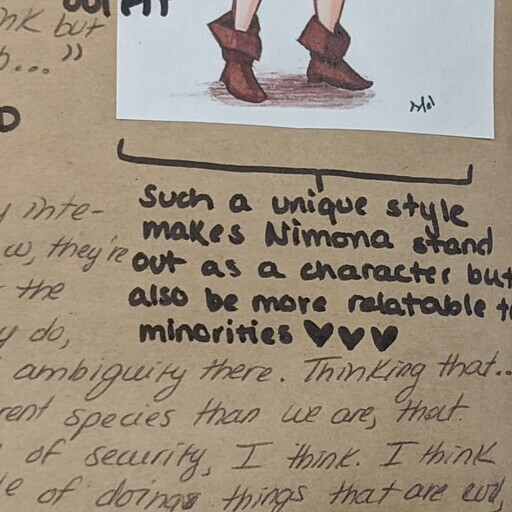 OUTFIT
ink but
..."
Mel
D
Such a unique style
makes Nimona stand
out as a character but
also be more relatable to
minorities ♥♥♥
y inte-
w, they're
the
y do,
ambiguity there. Thinking that..
rent species than we are, that
of security, I think. I think
le of doings things that are evil,